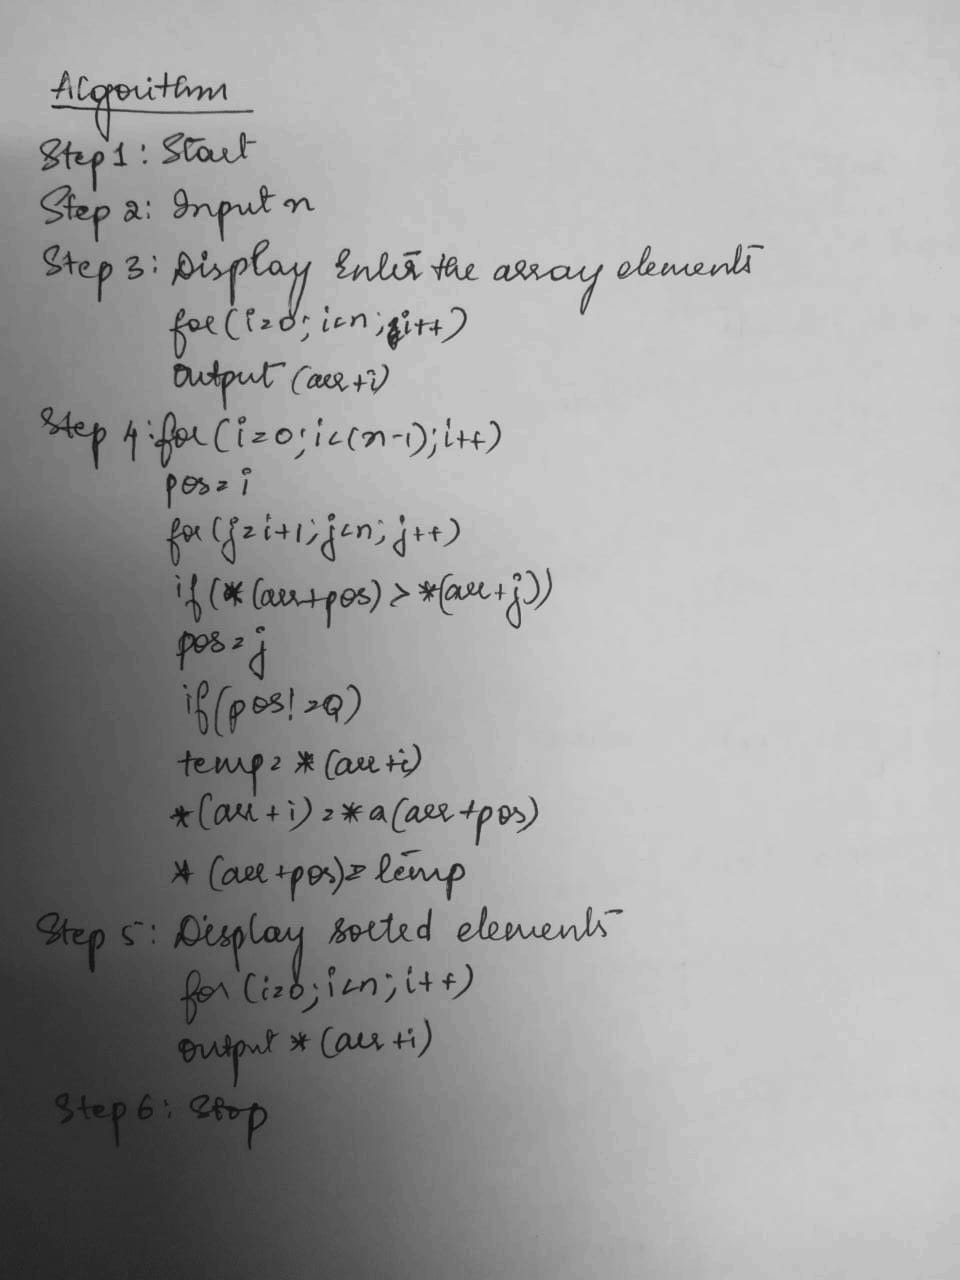 Algorithm
Step 1: Start
Step 2: Input n
Step 3: Display Enter the array elements
for(i=0; i<n; i++)
output (arr+i)
Step 4: for(i=0; i<(n-1); i++)
pos=i
for(j=i+1; j<n; j++)
if(*(arr+pos) > *(arr+j))
pos=j
if(pos!=Q)
temp= *(arr+i)
*(arr+i) = *a(arr+pos)
*(arr+pos)= temp
Step 5: Display sorted elements
for(i=0; i<n; i++)
output *(arr+i)
Step 6: Stop